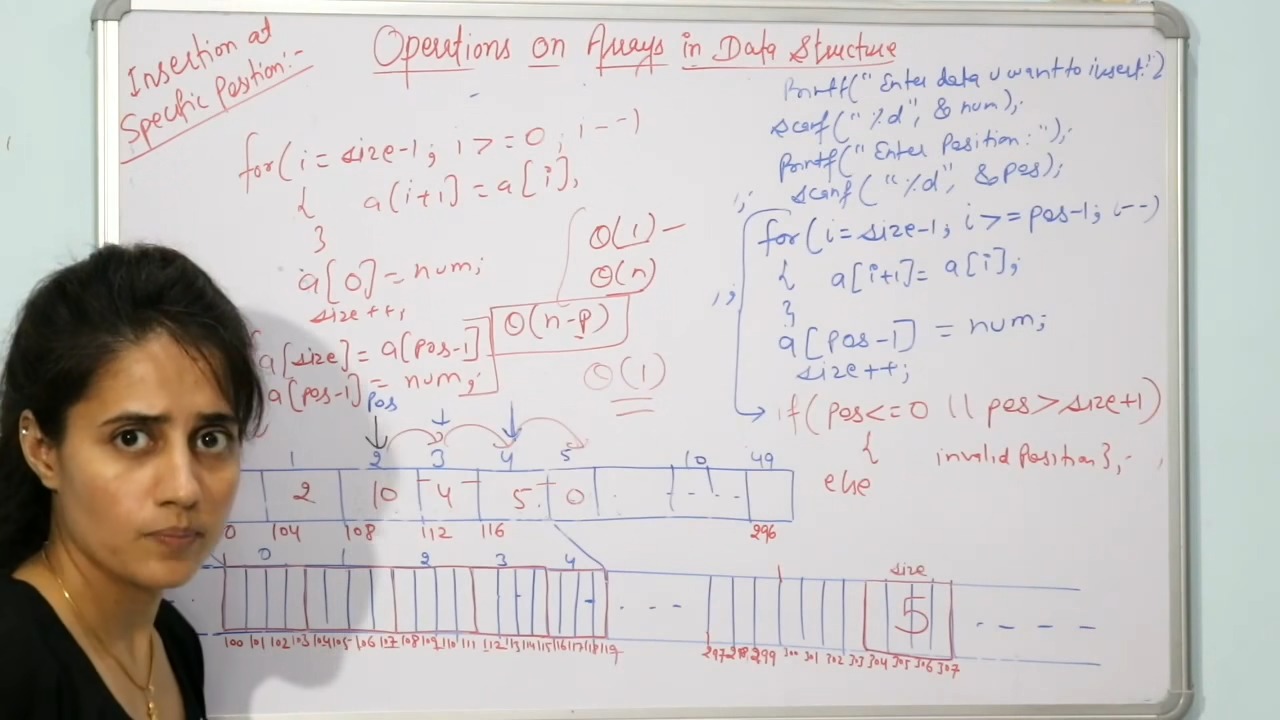 Insertion at
Specific Position:-
Operations on Arrays in Data Structure
for(i = size-1; i >= 0; i--)
{ a(i+1] = a[i],
}
a[0] = num;
size++;
a[size] = a[pos-1]
a[pos-1] = num;
O(1) -
O(n)
O(n-p)
O(1)
Printf(" Enter data u want to insert:")
scanf(" %d", & num);
Printf(" Enter Position:");
scanf( "%d", &pos);
for(i = size-1; i >= pos-1; i--)
{ a[i+1] = a[i];
}
a[pos-1] = num;
size++;
if( pos<=0 || pos > size+1)
{ invalid position },-
else
pos
1 2 3 4 5 10 49
2 10 4 5 0 . - . - . .
0 104 108 112 116 296
0 1 2 3 4 size
- - - 5 - - - -
100 101 102 103 104 105 106 107 108 109 110 111 112 113 114 115 116 117 118 119 297 298 299 300 301 302 303 304 305 306 307